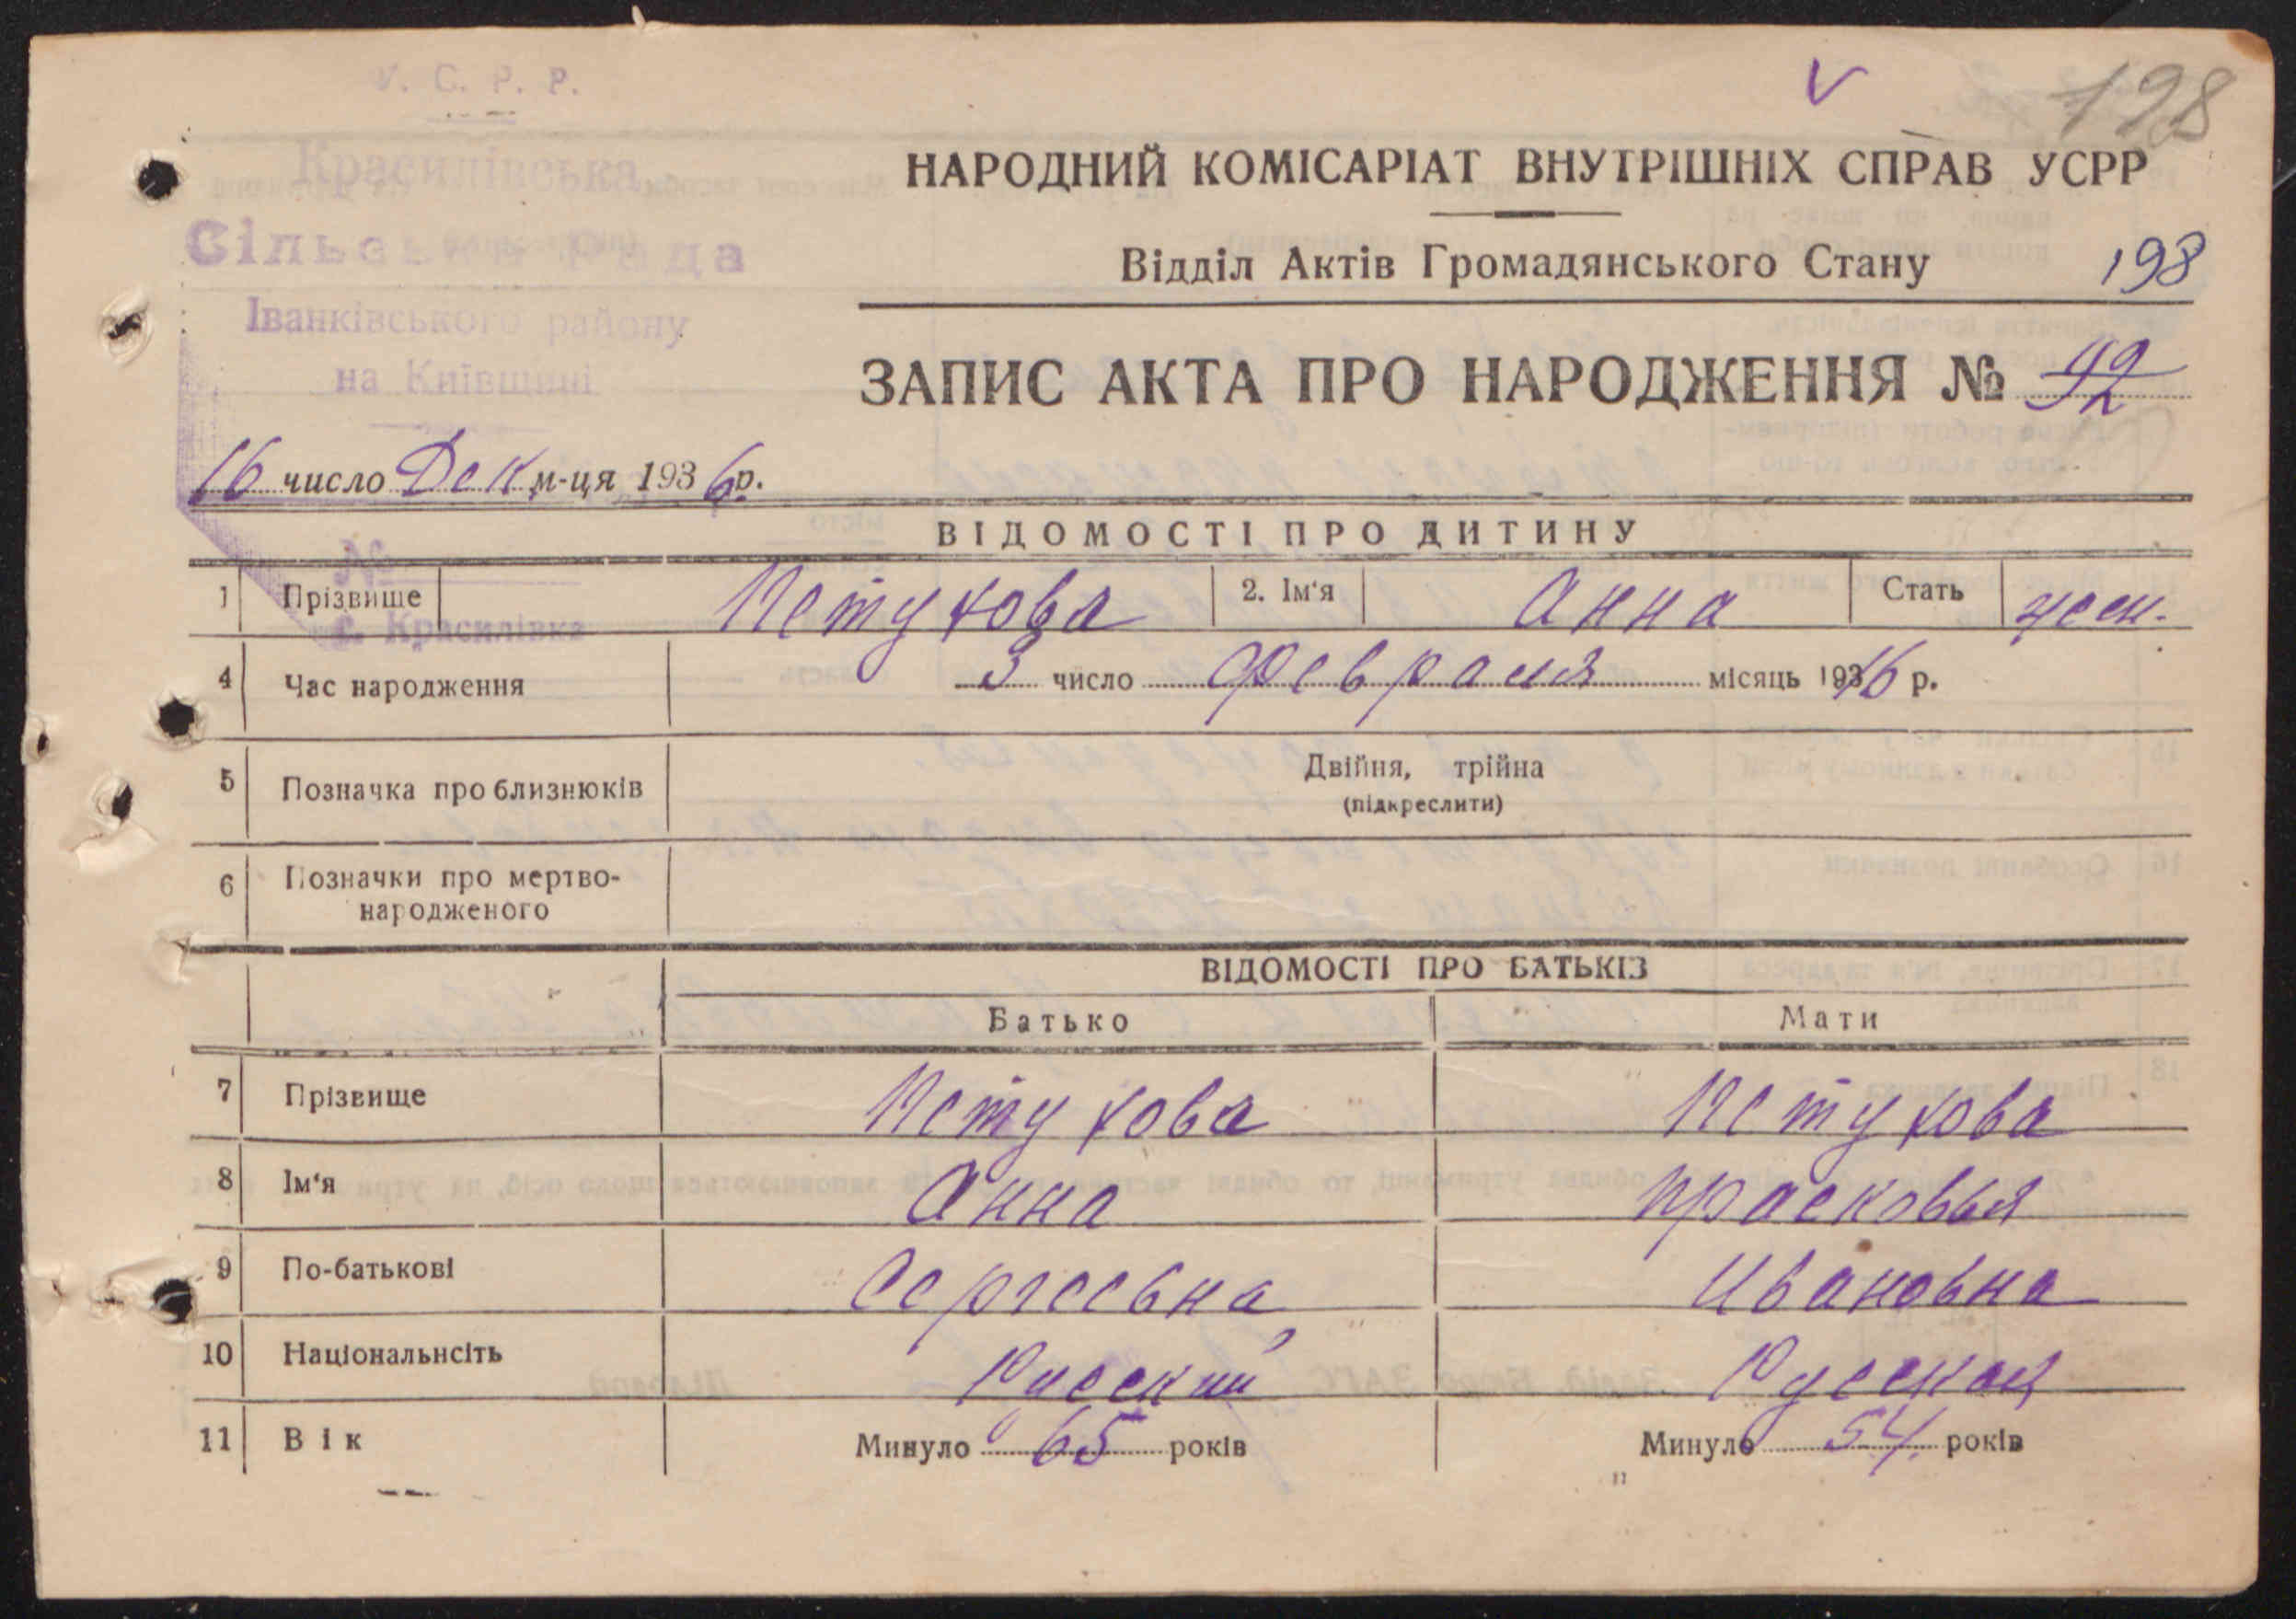 У. С. Р. Р.
V
198
Красилівська
Сільська Рада
Іванківського району
на Київщині
НАРОДНИЙ КОМІСАРІАТ ВНУТРІШНІХ СПРАВ УСРР
Відділ Актів Громадянського Стану 198
ЗАПИС АКТА ПРО НАРОДЖЕННЯ № 92
16 число Дек. м-ця 1936 р.
№
с. Красилівка
ВІДОМОСТІ ПРО ДИТИНУ
1 Прізвище Петухова 2. Ім'я Анна Стать жен.
4 Час народження 3 число Февраля місяць 1916 р.
5 Позначка про близнюків Двійня, трійна
(підкреслити)
6 Позначки про мертво-
народженого
ВІДОМОСТІ ПРО БАТЬКІВ
Батько Мати
7 Прізвище Петухова Петухова
8 Ім'я Анна Прасковья
9 По-батькові Сергеевна Ивановна
10 Національнсіть Русский Русская
11 Вік Минуло 65 років Минуло 54 років